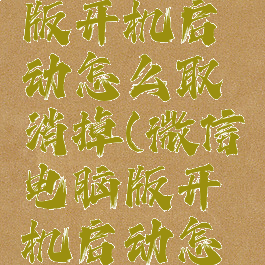 版开机启
动怎么取
消掉(微信
电脑版开
机启动怎